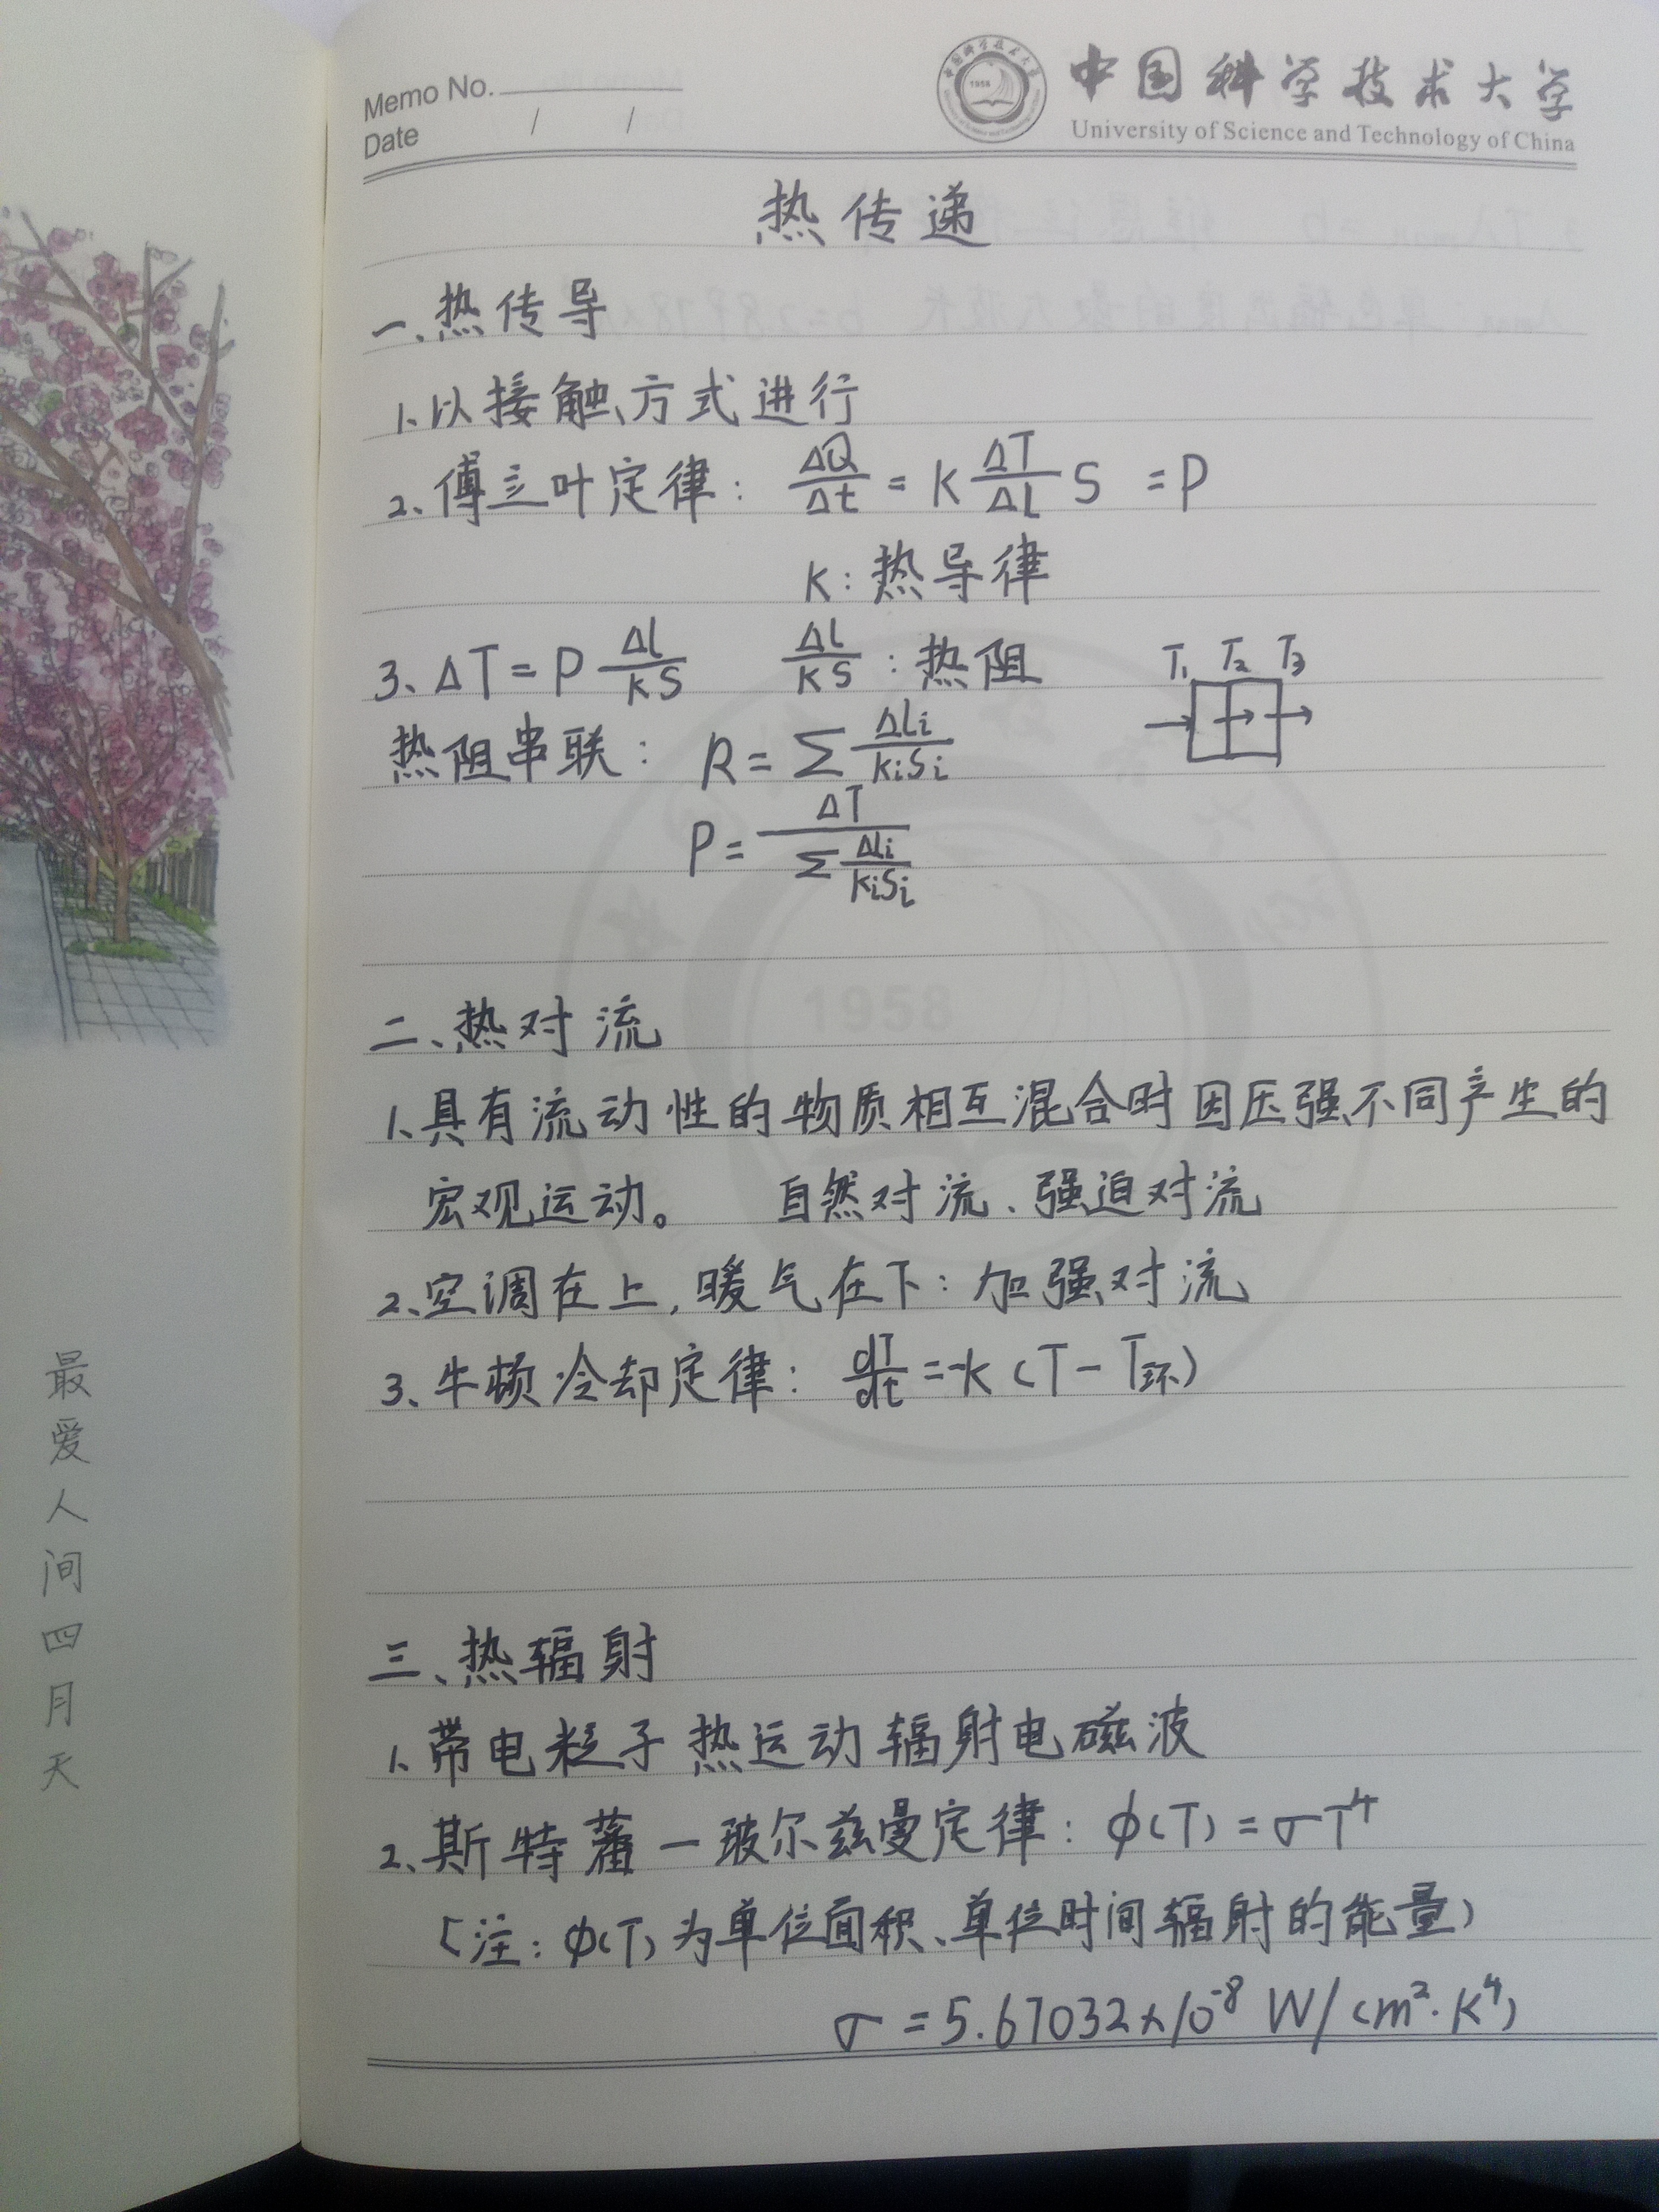 Memo No.
Date / /
中国科学技术大学
University of Science and Technology of China
热传递
一、热传导
1、以接触方式进行
2、傅立叶定律: ΔQ/Δt = K ΔT/ΔL S = P
K: 热导律
3、ΔT = P Δl/KS   Δl/KS : 热阻   T₁ T₂ T₃
热阻串联: R = Σ ΔLi/KiSi
P = ΔT / Σ ΔLi/KiSi
1958
二、热对流
1、具有流动性的物质相互混合时因压强不同产生的
宏观运动。 自然对流、强迫对流
2、空调在上,暖气在下: 加强对流
3、牛顿冷却定律: dT/dt = -k (T - T环)
三、热辐射
1、带电粒子热运动辐射电磁波
2、斯特藩一玻尔兹曼定律: φ(T) = σT⁴
(注: φ(T) 为单位面积、单位时间辐射的能量)
σ = 5.67032×10⁻⁸ W/(m²·K⁴)
最爱人间四月天